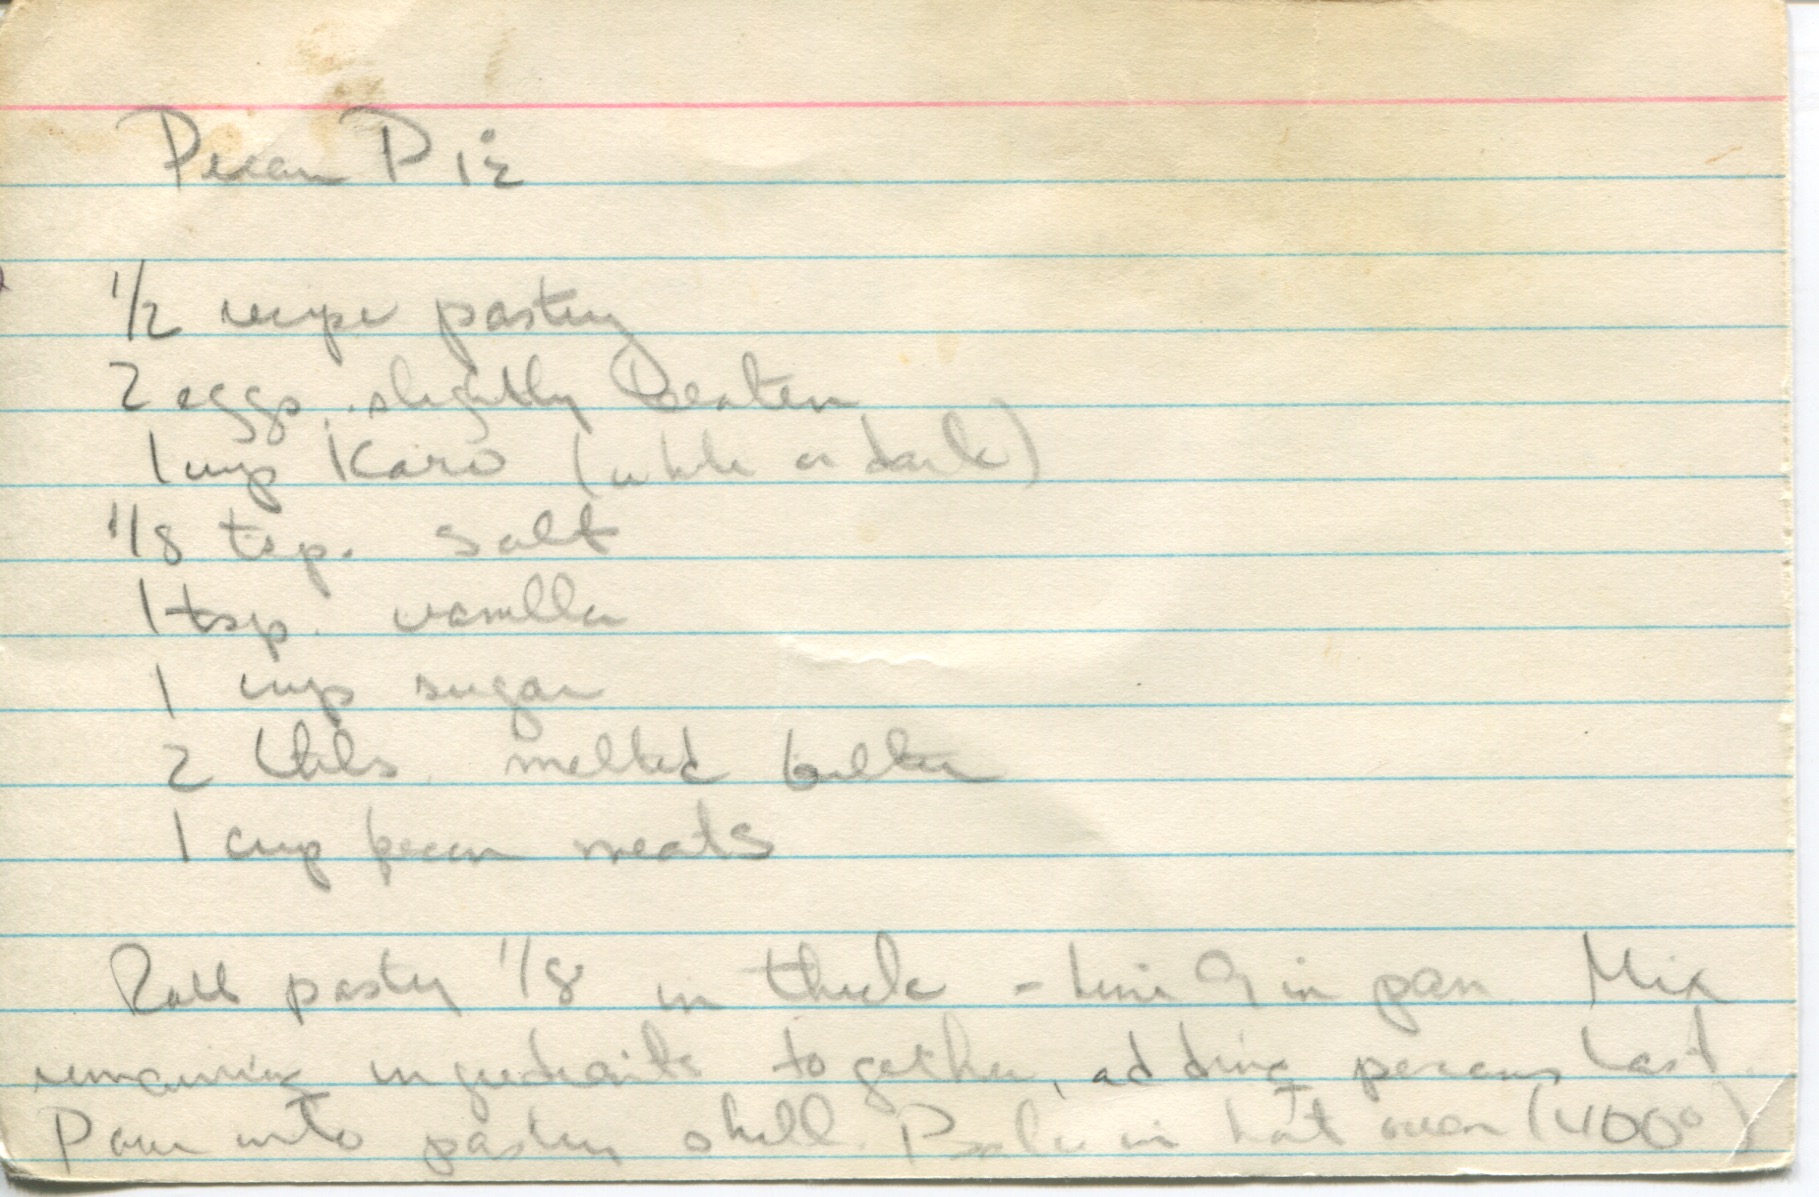 Pecan Pie
1/2 recipe pastry
2 eggs, slightly beaten
1 cup Karo (white or dark)
1/8 tsp. salt
1 tsp. vanilla
1 cup sugar
2 tbls. melted butter
1 cup pecan meats
Roll pastry 1/8 in thick - Line 9 in pan. Mix
remaining ingredients together, adding pecans last.
Pour into pastry shell. Bake in hot oven (400°)